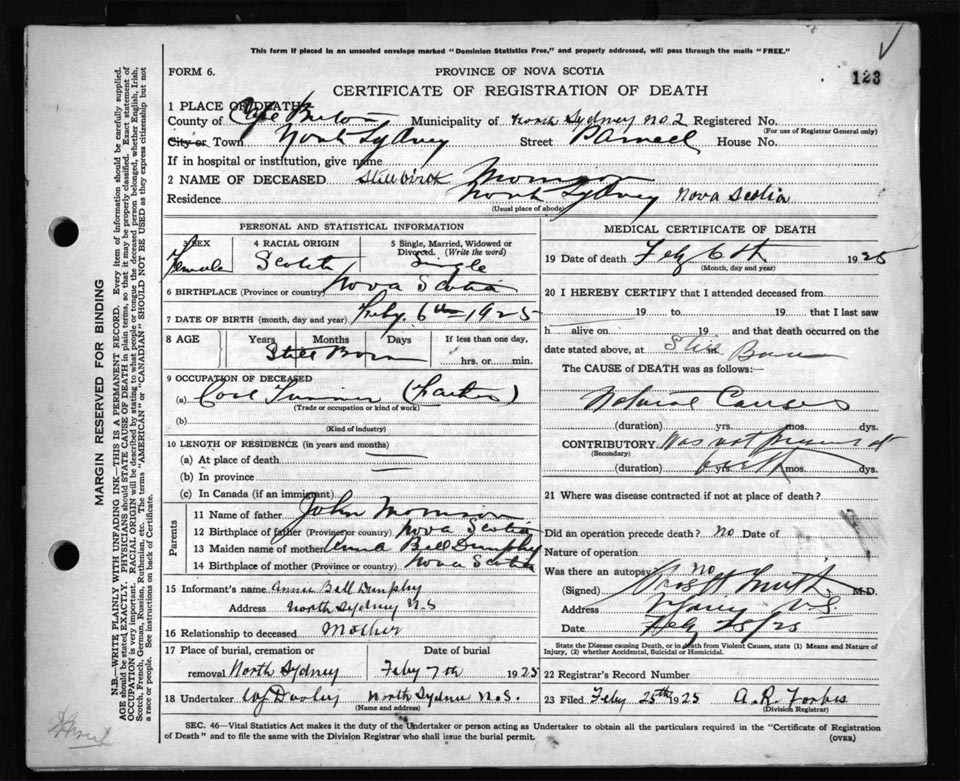 This form if placed in an unsealed envelope marked "Dominion Statistics Free," and properly addressed, will pass through the mails "FREE."
FORM 6.
PROVINCE OF NOVA SCOTIA
123
CERTIFICATE OF REGISTRATION OF DEATH
1 PLACE OF DEATH
County of Cape Breton Municipality of North Sydney No. 2 Registered No.
(For use of Registrar General only)
City or Town North Sydney Street House No.
If in hospital or institution, give name
2 NAME OF DECEASED Stillbirth
Residence North Sydney Nova Scotia
(Usual place of abode)
PERSONAL AND STATISTICAL INFORMATION
3 SEX Female
4 RACIAL ORIGIN Scotch
5 Single, Married, Widowed or Divorced. (Write the word) Single
6 BIRTHPLACE (Province or country) Nova Scotia
7 DATE OF BIRTH (month, day and year) Feby. 6th 1925
8 AGE Years Months Days If less than one day,
Still Born hrs. or min.
9 OCCUPATION OF DECEASED
(a) (Father)
(Trade or occupation or kind of work)
(b)
(Kind of industry)
10 LENGTH OF RESIDENCE (in years and months)
(a) At place of death
(b) In province
(c) In Canada (if an immigrant)
Parents
11 Name of father John
12 Birthplace of father (Province or country) Nova Scotia
13 Maiden name of mother Anna Bell
14 Birthplace of mother (Province or country) Nova Scotia
15 Informant's name Annie Bell
Address North Sydney N.S
16 Relationship to deceased Mother
17 Place of burial, cremation or removal North Sydney Feby 7th 1925
18 Undertaker North Sydney N.S.
(Name and address)
MEDICAL CERTIFICATE OF DEATH
19 Date of death Feby 6th 1925
(Month, day and year)
20 I HEREBY CERTIFY that I attended deceased from
19 to 19 that I last saw
h alive on 19 and that death occurred on the
date stated above, at Still Born
The CAUSE of DEATH was as follows:
Natural Causes
(duration) yrs. mos. dys.
CONTRIBUTORY. Was not present at
(Secondary)
(duration) birth yrs. mos. dys.
21 Where was disease contracted if not at place of death?
Did an operation precede death? No Date of
Nature of operation
Was there an autopsy? No
(Signed) M.D.
Address N.S.
Date Feby 25/25
State the Disease causing Death, or in death from Violent Causes, state (1) Means and Nature of Injury, (2) whether Accidental, Suicidal or Homicidal.
22 Registrar's Record Number
23 Filed Feby 25th 1925 A. R. Forbes
(Division Registrar)
SEC. 46—Vital Statistics Act makes it the duty of the Undertaker or person acting as Undertaker to obtain all the particulars required in the "Certificate of Registration of Death" and to file the same with the Division Registrar who shall issue the burial permit.
(OVER)
MARGIN RESERVED FOR BINDING
N.B.—WRITE PLAINLY WITH UNFADING INK—THIS IS A PERMANENT RECORD. Every item of information should be carefully supplied.
AGE should be stated EXACTLY. PHYSICIANS should STATE CAUSE OF DEATH in plain terms, so that it may be properly classified. Exact statement of
OCCUPATION is very important. RACIAL ORIGIN will be described by stating to what people or tongue the deceased person belonged, whether English, Irish,
Scotch, French, German, Russian, Ruthenian, etc. The terms "AMERICAN" or "CANADIAN" SHOULD NOT BE USED as they express citizenship but not
a race or people. See instructions on back of Certificate.